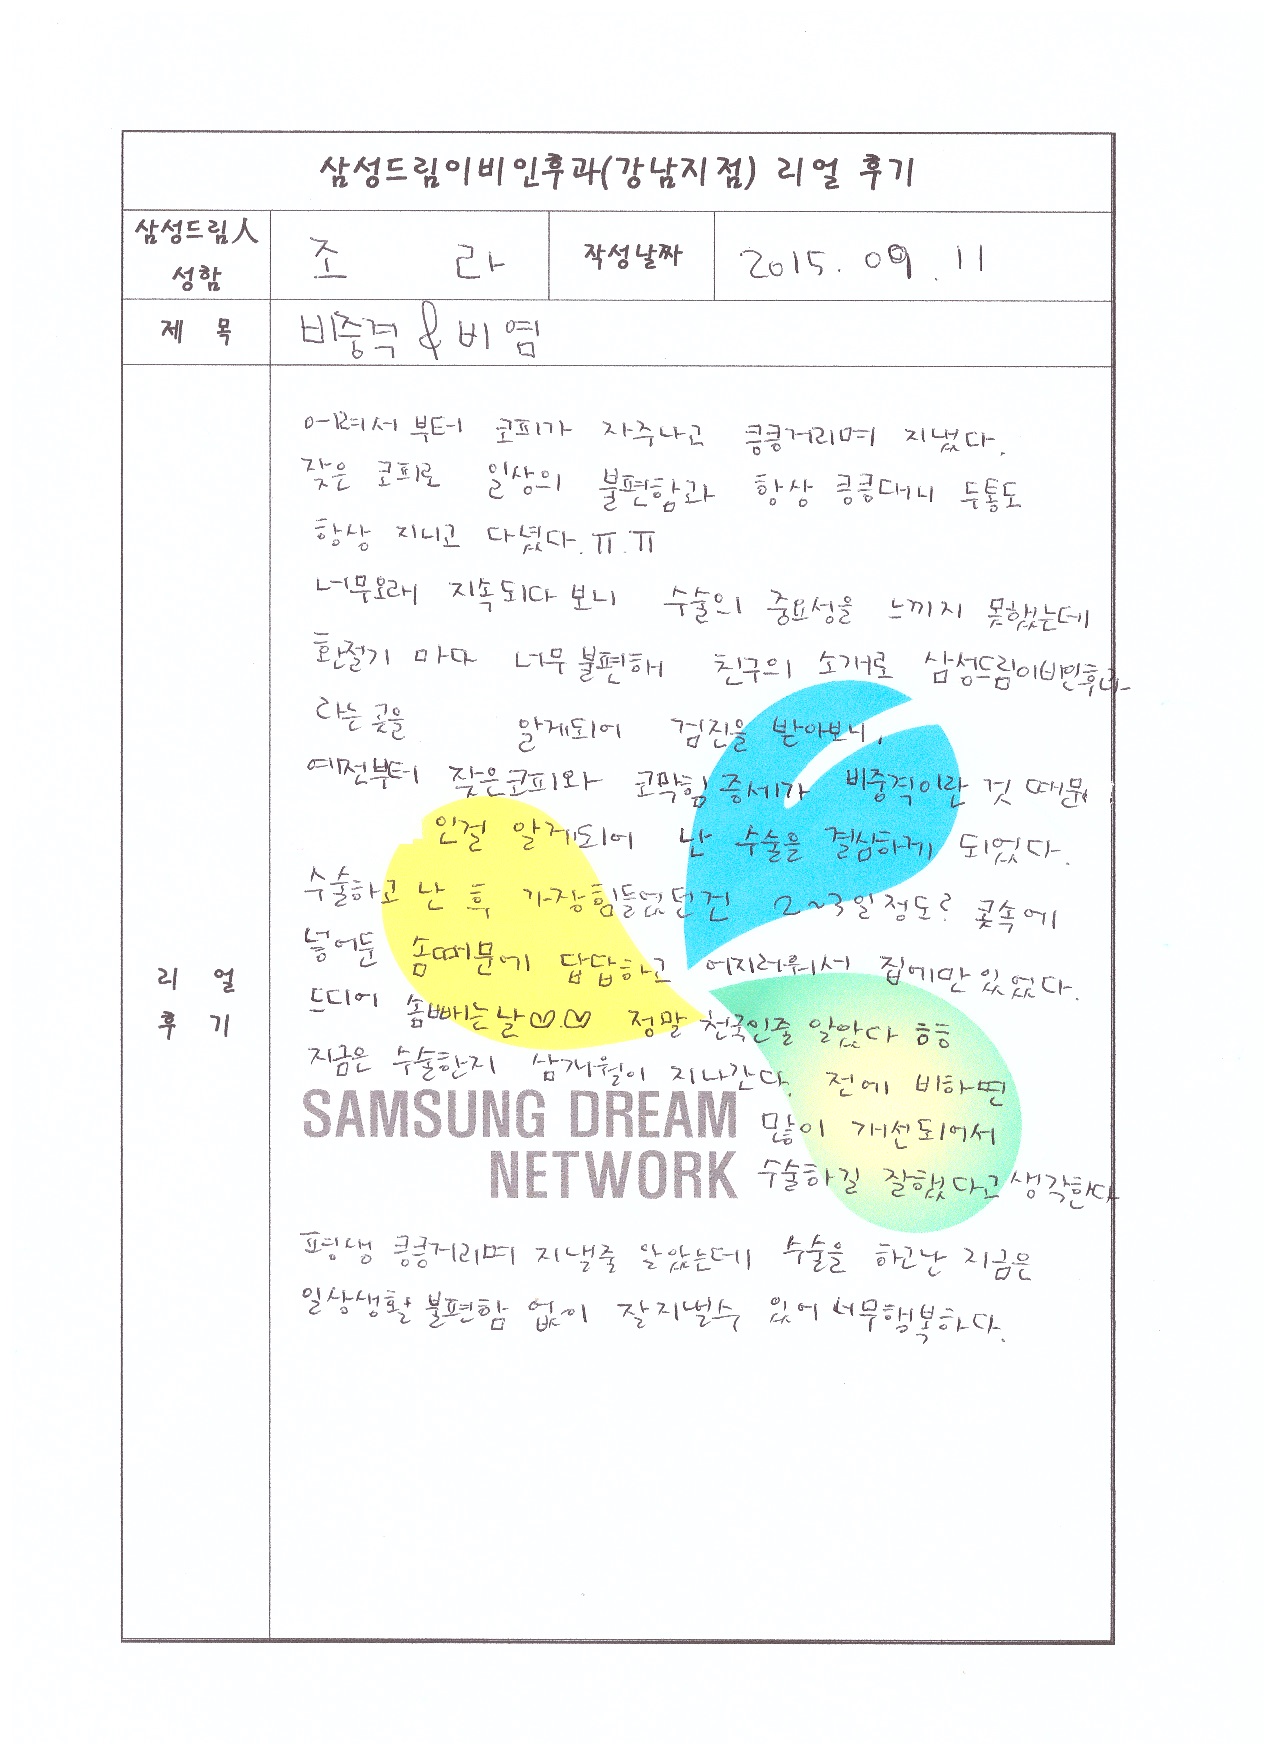 삼성드림이비인후과(강남지점) 리얼 후기
삼성드림人 성함
조 라
작성날짜
2015. 09. 11
제 목
비중격 & 비염
리 얼 후 기
어려서부터 코피가 자주나고 킁킁거리며 지냈다.
잦은 코피로 일상의 불편함과 항상 킁킁대니 두통도
항상 지니고 다녔다.ㅠ.ㅠ
너무오래 지속되다보니 수술의 중요성을 느끼지 못했는데
환절기 마다 너무 불편해 친구의 소개로 삼성드림이비인후과
라는 곳을 알게되어 검진을 받아보니,
예전부터 잦은코피와 코막힘 증세가 비중격이란 것 때문
인걸 알게되어 난 수술을 결심하게 되었다.
수술하고 난 후 가장힘들었던건 2~3일정도? 콧속에
넣어둔 솜때문에 답답하고 어지러워서 집에만 있었다.
드디어 솜빼는날♡.♡ 정말 천국인줄 알았다 흠흠
지금은 수술한지 삼개월이 지나간다. 전에 비하면
많이 개선되어서
SAMSUNG DREAM
NETWORK
수술하길 잘했다고 생각한다
평생 킁킁거리며 지낼줄 알았는데 수술을 하고난 지금은
일상생활 불편함 없이 잘지낼수 있어 너무행복하다.